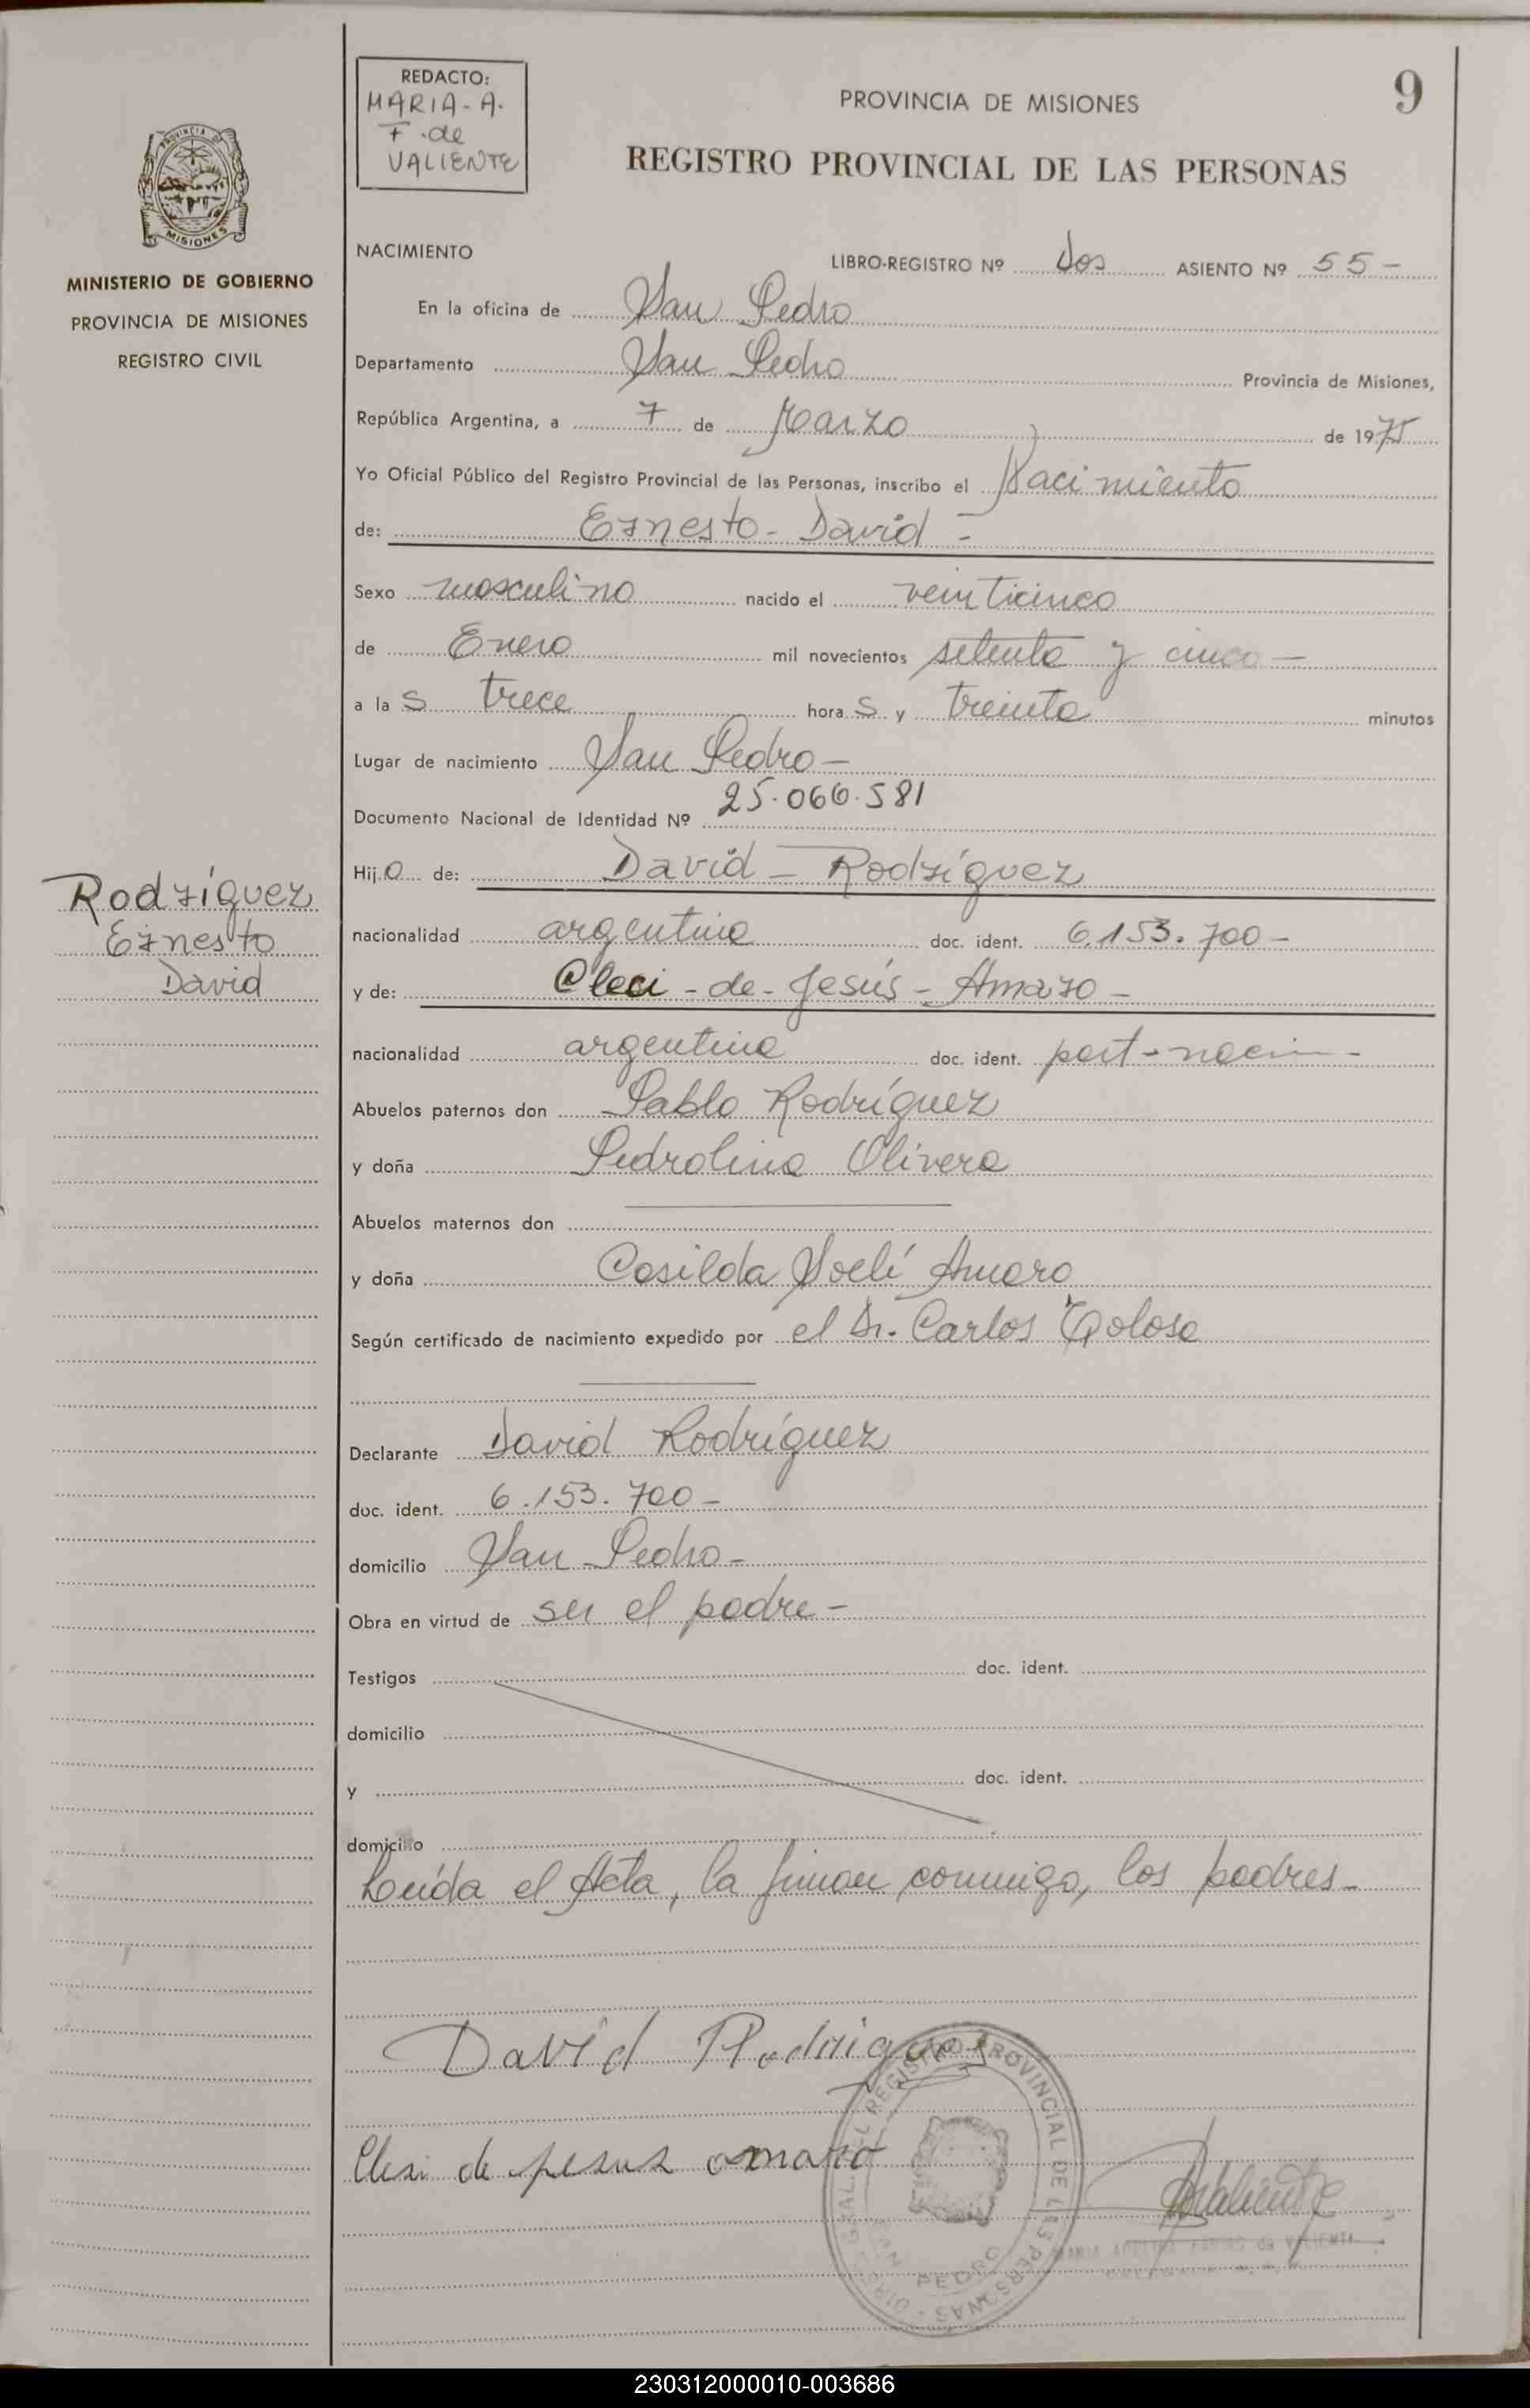 REDACTO:
MARIA-A.
F. de
VALIENTE
PROVINCIA DE MISIONES
9
REGISTRO PROVINCIAL DE LAS PERSONAS
MISIONES
MINISTERIO DE GOBIERNO
PROVINCIA DE MISIONES
REGISTRO CIVIL
NACIMIENTO
LIBRO-REGISTRO Nº dos ASIENTO Nº 55-
En la oficina de San Pedro
Departamento San Pedro Provincia de Misiones,
República Argentina, a 7 de Marzo de 1975
Yo Oficial Público del Registro Provincial de las Personas, inscribo el Nacimiento
de: Ernesto - David -
Sexo masculino nacido el veinticinco
de Enero mil novecientos setenta y cinco -
a las trece horas y treinta minutos
Lugar de nacimiento San Pedro -
Documento Nacional de Identidad Nº 25.066.581
Hijo de: David - Rodríguez
Rodríguez
Ernesto
David
nacionalidad argentina doc. ident. 6.153.700-
y de: Cleci - de - Jesús - Amaro -
nacionalidad argentina doc. ident. part-nacim-
Abuelos paternos don Pablo Rodríguez
y doña Pedrolina Olivera
Abuelos maternos don
y doña Casilda Amaro
Según certificado de nacimiento expedido por el Dr. Carlos Tolosa
Declarante David Rodríguez
doc. ident. 6.153.700-
domicilio San Pedro-
Obra en virtud de ser el padre-
Testigos doc. ident.
domicilio
y doc. ident.
domicilio
Leída el Acta, la firman conmigo, los padres-
David Rodriguez
de jesus amaro
REGISTRO PROVINCIAL DE LAS PERSONAS
SAN PEDRO
Valiente
230312000010-003686